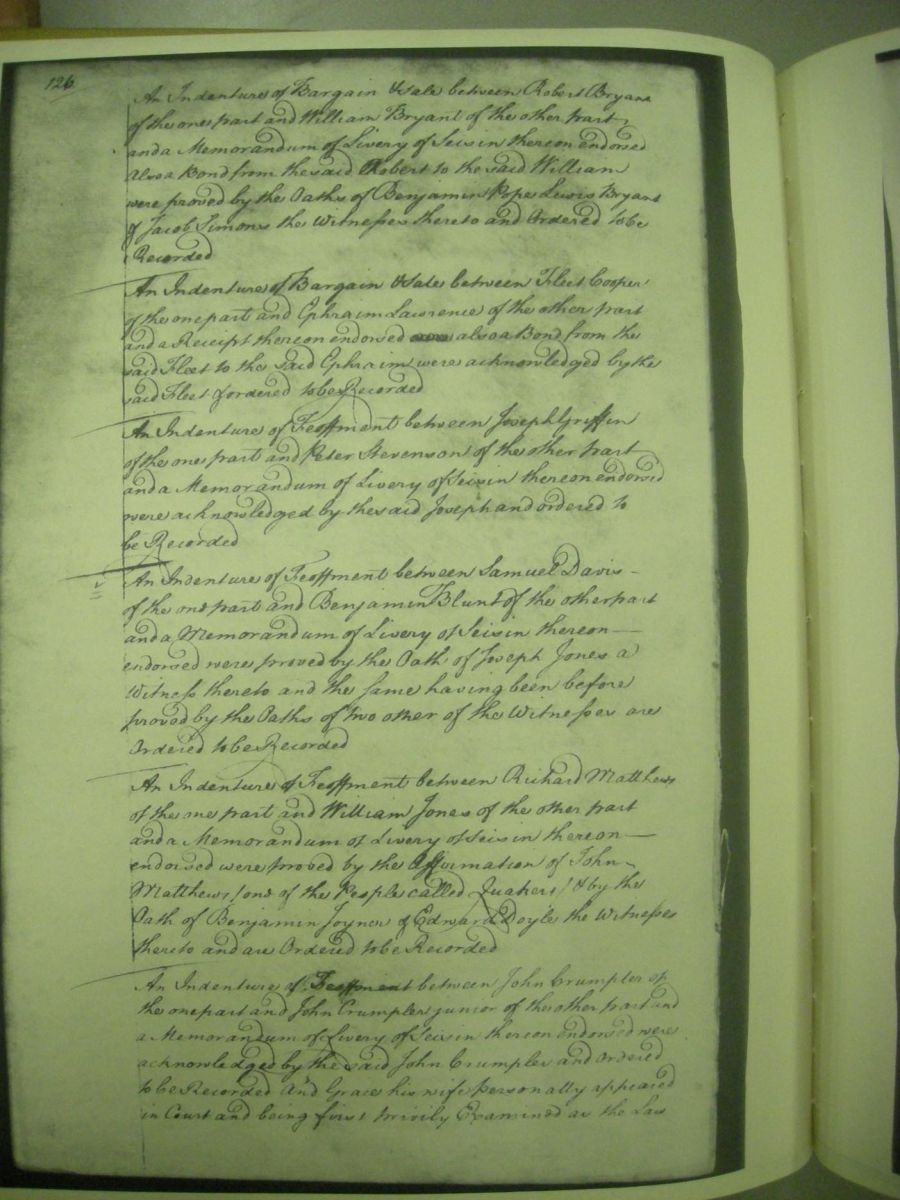 126
An Indenture of Bargain & Sale between Robert Bryant
of the one part and William Bryant of the other part
and a Memorandum of Livery of Seisin thereon endorsed
also a Bond from the said Robert to the said William
were proved by the Oaths of Benjamin Pope Lewis Bryant
& Jacob Simons the Witnesses thereto and Ordered to be
Recorded
An Indenture of Bargain & Sale between Fleet Cooper
of the one part and Ephraim Lawrence of the other part
and a Receipt thereon endorsed also a Bond from the
said Fleet to the said Ephraim were acknowledged by the
said Fleet & ordered to be Recorded
An Indenture of Feoffment between Joseph Griffin
of the one part and Peter Stevenson of the other part
and a Memorandum of Livery of Seisin thereon endorsed
were acknowledged by the said Joseph and ordered to
be Recorded
An Indenture of Feoffment between Samuel Davis
of the one part and Benjamin Blunt of the other part
and a Memorandum of Livery of Seisin thereon
endorsed were proved by the Oath of Joseph Jones a
Witness thereto and the same having been before
proved by the Oaths of two other of the Witnesses are
Ordered to be Recorded
An Indenture of Feoffment between Richard Matthews
of the one part and William Jones of the other part
and a Memorandum of Livery of Seisin thereon
endorsed were proved by the Affirmation of John
Matthews (one of the People called Quakers) & by the
Oath of Benjamin Joyner & Edward Doyle the Witnesses
thereto and are Ordered to be Recorded
An Indenture of Feoffment between John Crumpler of
the one part and John Crumpler junior of the other part and
a Memorandum of Livery of Seisin thereon endorsed were
acknowledged by the said John Crumpler and Ordered
to be Recorded And Grace his wife personally appeared
in Court and being first privily Examined as the Law